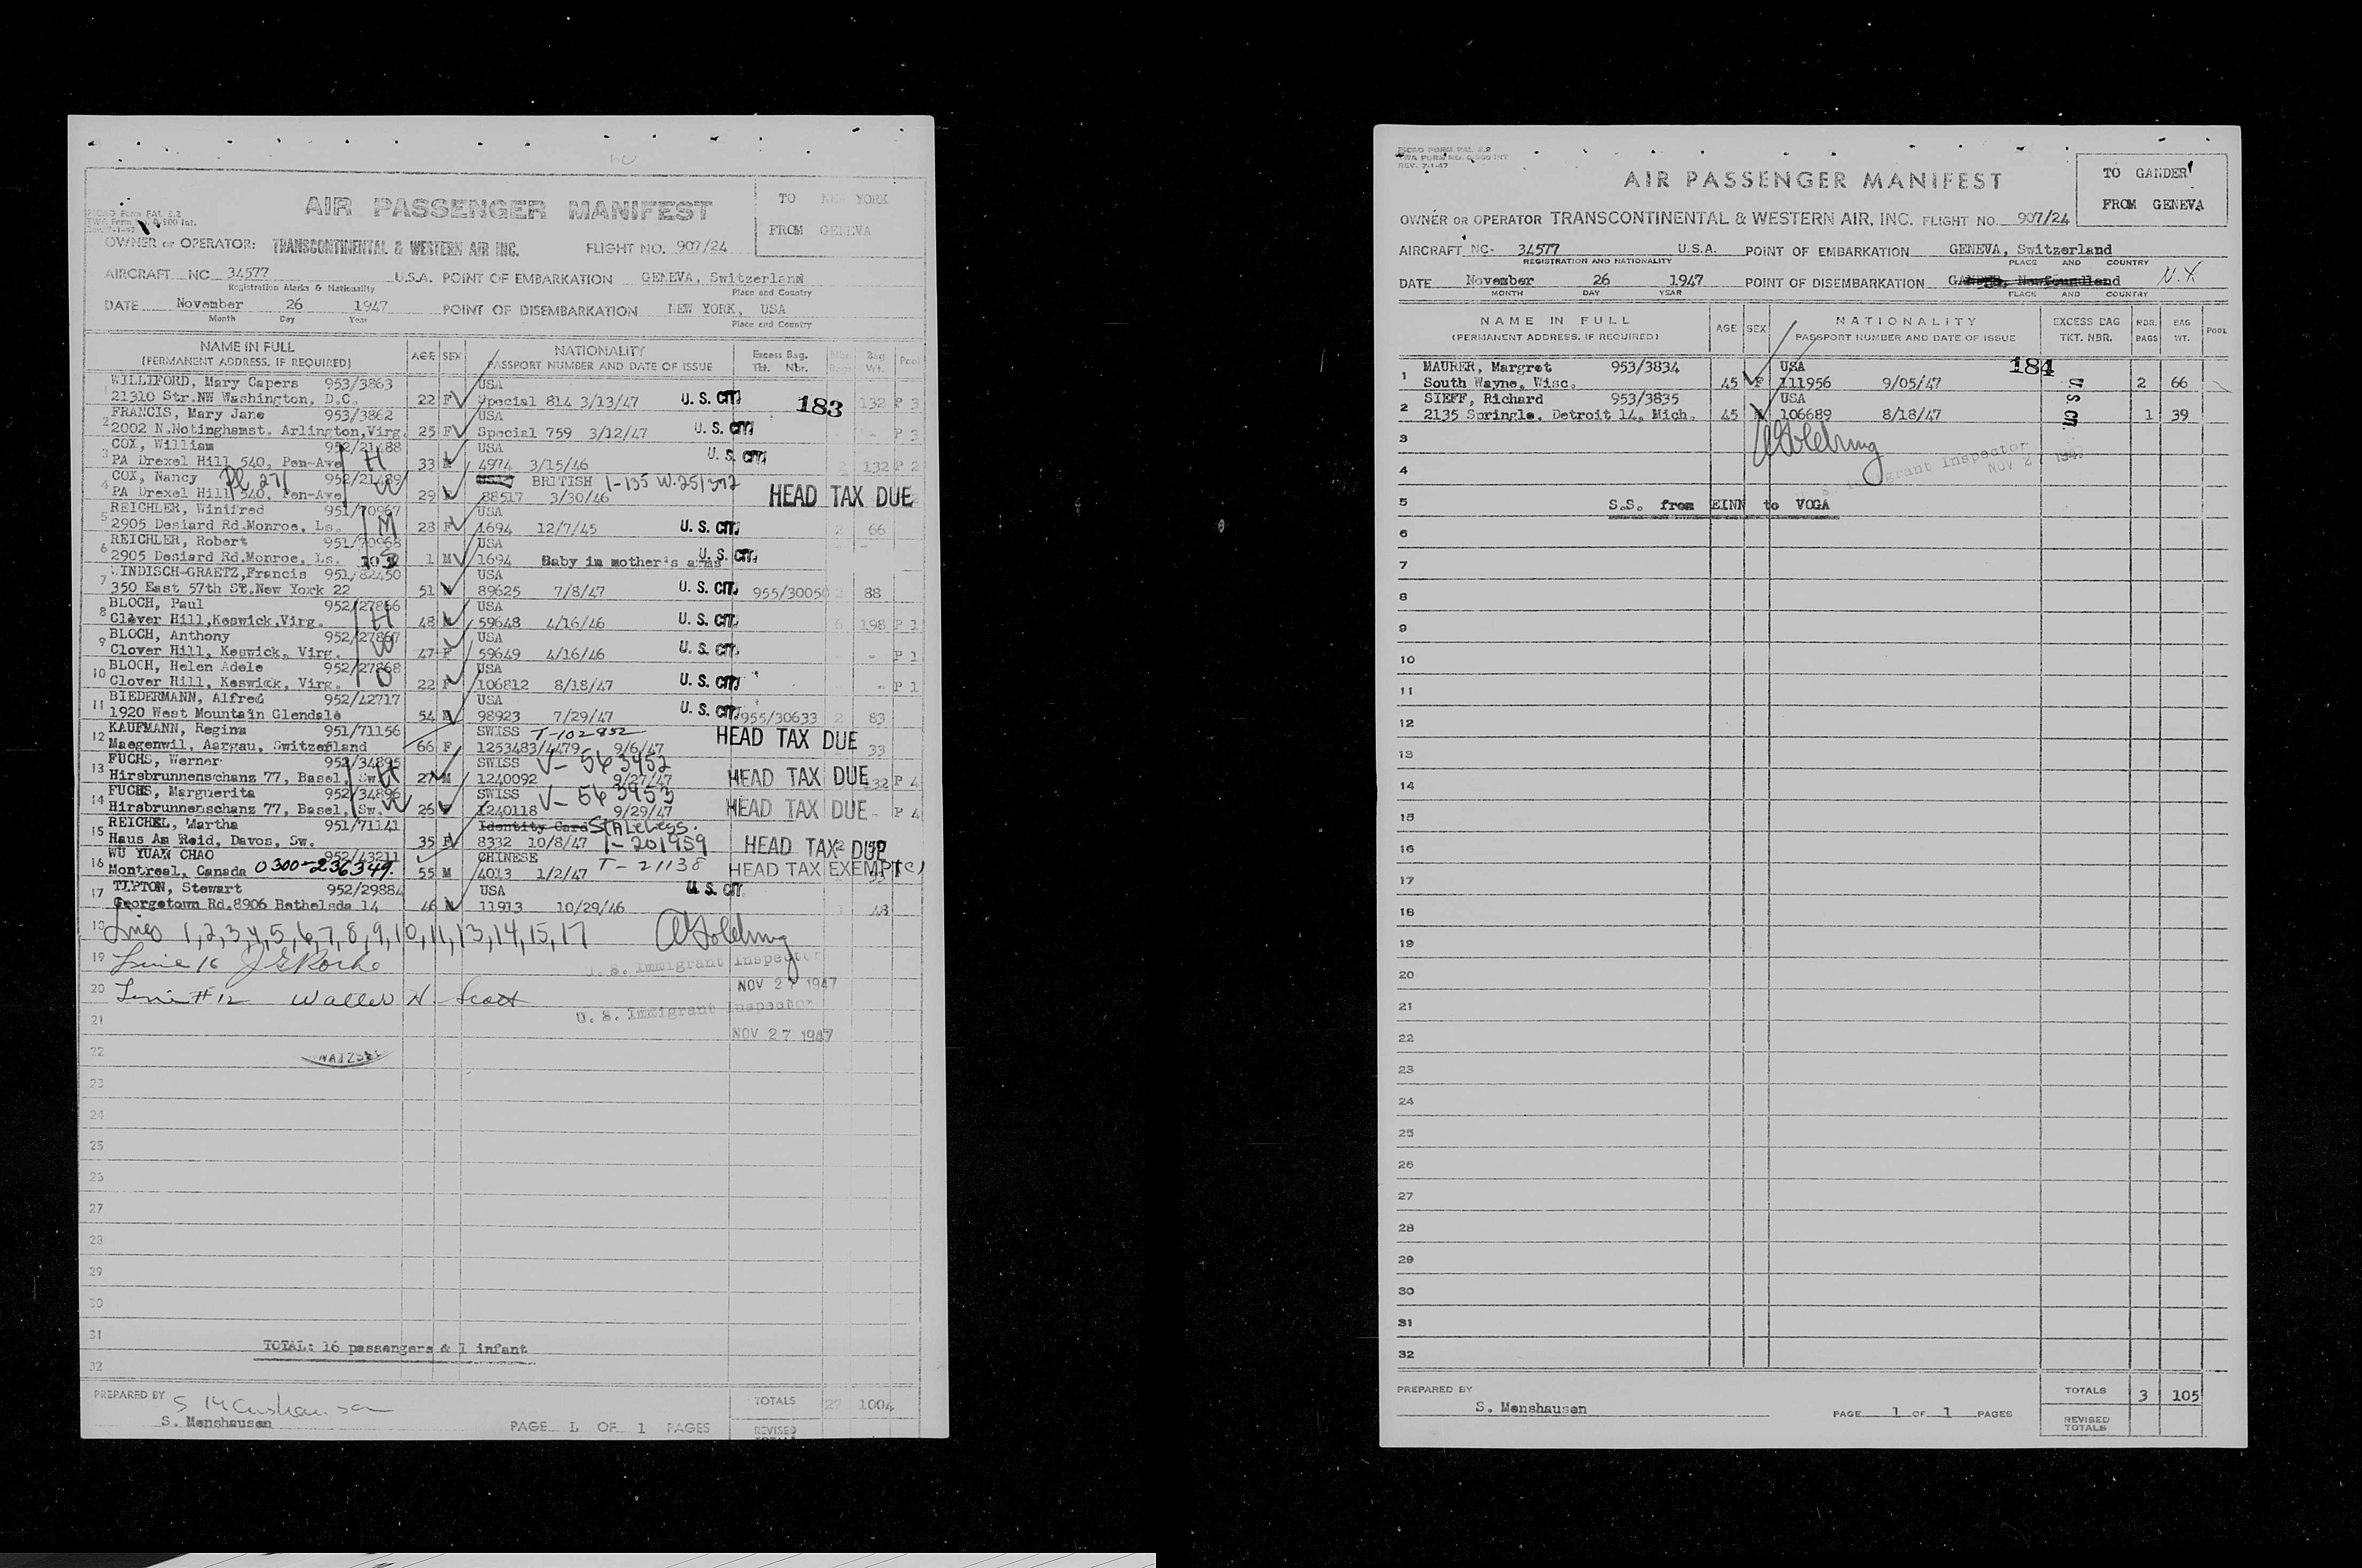 AIR PASSENGER MANIFEST
TO NEW YORK
FROM GENEVA
ICAO Form FAL E.2
TWA Form No. 0-500 Int.
OWNER or OPERATOR: TRANSCONTINENTAL & WESTERN AIR INC. FLIGHT NO. 907/24
AIRCRAFT NC 34577 U.S.A. POINT OF EMBARKATION GENEVA, Switzerland
Registration Marks & Nationality Place and Country
DATE November 26 1947 POINT OF DISEMBARKATION NEW YORK, USA
Month Day Year Place and Country
NAME IN FULL (PERMANENT ADDRESS, IF REQUIRED) AGE SEX NATIONALITY PASSPORT NUMBER AND DATE OF ISSUE Excess Bag. Tkt. Nbr. Bag Wt. Pool
1 WILLIFORD, Mary Capers 953/3863 USA
21310 Str.NW Washington, D.C. 22 F Special 814 3/13/47 U. S. CIT. 183 132 P 3
2 FRANCIS, Mary Jane 953/3862 USA
2002 N.Notinghamst. Arlington,Virg. 25 F Special 759 3/12/47 U. S. CIT. - P 3
3 COX, William 952/21488 USA
PA Drexel Hill 540, Pen-Ave H 33 M 4974 3/15/46 U. S. CIT. 2 132 P 2
4 COX, Nancy 952/21489 BRITISH
PA Drexel Hill 540, Pen-Ave W 29 F 88517 3/30/46 HEAD TAX DUE
5 REICHLER, Winifred 951/70967 USA
2905 Desiard Rd.Monroe, Ls. M 28 F 1694 12/7/45 U. S. CIT. 2 66
6 REICHLER, Robert 951/70968 USA
2905 Desiard Rd.Monroe, Ls. 1 M 1694 Baby in mother's arms U. S. CIT.
7 WINDISCH-GRAETZ,Francis 951/82450 USA
350 East 57th St.New York 22 51 M 89625 7/8/47 U. S. CIT. 955/30050 2 88
8 BLOCH, Paul 952/27866 USA
Clover Hill,Keswick,Virg. H 48 M 59648 4/16/46 U. S. CIT. 6 198 P 1
9 BLOCH, Anthony 952/27867 USA
Clover Hill, Keswick, Virg. W 47 F 59649 4/16/46 U. S. CIT. - P 1
10 BLOCH, Helen Adele 952/27868 USA
Clover Hill, Keswick, Virg. D 22 F 106812 8/18/47 U. S. CIT. - P 1
11 BIEDERMANN, Alfred 952/42717 USA
1920 West Mountain Glendale 54 M 98923 7/29/47 U. S. CIT. 955/30633 2 83
12 KAUFMANN, Regina 951/71156 SWISS T-102952
Maegenwil, Aargau, Switzerland 66 F 1253483/4479 9/6/47 HEAD TAX DUE 33
13 FUCHS, Werner 952/34895 SWISS V-563952
Hirsbrunnenschanz 77, Basel, Sw. H 27 M 1240092 9/27/47 HEAD TAX DUE 132 P 4
14 FUCHS, Marguerita 952/34896 SWISS V-563953
Hirsbrunnenschanz 77, Basel, Sw. W 26 F 1240118 9/29/47 HEAD TAX DUE - P 4
15 REICHEL, Martha 951/71141 Identity Card Stateless.
Haus Am Reid, Davos, Sw. 35 F 8332 10/8/47 T-201959 HEAD TAX DUE
16 WU YUAN CHAO 952/43211 CHINESE
Montreal, Canada 0300-236349. 55 M 4013 1/2/47 T-21138 HEAD TAX EXEMPT(C)
17 TIPTON, Stewart 952/29884 USA
Georgetown Rd.8906 Bethelsda 14 46 M 11913 10/29/46 U. S. CIT. 48
18 Lines 1,2,3,4,5,6,7,8,9,10,11,13,14,15,17
19 Line 16 J G Roche U. S. Immigrant Inspector
NOV 27 1947
20 Line #12 Walter H. Scott U. S. Immigrant Inspector
21 NOV 27 1947
22
23
24
25
26
27
28
29
30
31
TOTAL: 16 passengers & 1 infant
32
PREPARED BY S Menshausen
S. Menshausen
PAGE 1 OF 1 PAGES
TOTALS 27 1004
REVISED TOTALS
ICAO FORM FAL E.2
TWA FORM NO. 0-500 INT
REV. 7-1-47
AIR PASSENGER MANIFEST
TO GANDER
FROM GENEVA
OWNER OR OPERATOR TRANSCONTINENTAL & WESTERN AIR, INC. FLIGHT NO. 907/24
AIRCRAFT NC- 34577 U.S.A. POINT OF EMBARKATION GENEVA, Switzerland
REGISTRATION AND NATIONALITY PLACE AND COUNTRY
DATE November 26 1947 POINT OF DISEMBARKATION GANDER, Newfoundland N.Y.
MONTH DAY YEAR PLACE AND COUNTRY
NAME IN FULL (PERMANENT ADDRESS, IF REQUIRED) AGE SEX NATIONALITY PASSPORT NUMBER AND DATE OF ISSUE EXCESS BAG TKT. NBR. NBR. BAGS BAG WT. POOL
1 MAURER, Margret 953/3834 USA 184
South Wayne, Wisc. 45 F 111956 9/05/47 2 66
2 SIEFF, Richard 953/3835 USA U S CIT.
2135 Springle, Detroit 14, Mich. 45 M 106689 8/18/47 1 39
3
4 U. S. Immigrant Inspector NOV 2 1947
5 S.S. from EINN to VOGA
6
7
8
9
10
11
12
13
14
15
16
17
18
19
20
21
22
23
24
25
26
27
28
29
30
31
32
PREPARED BY
S. Menshausen
PAGE 1 OF 1 PAGES
TOTALS 3 105
REVISED TOTALS